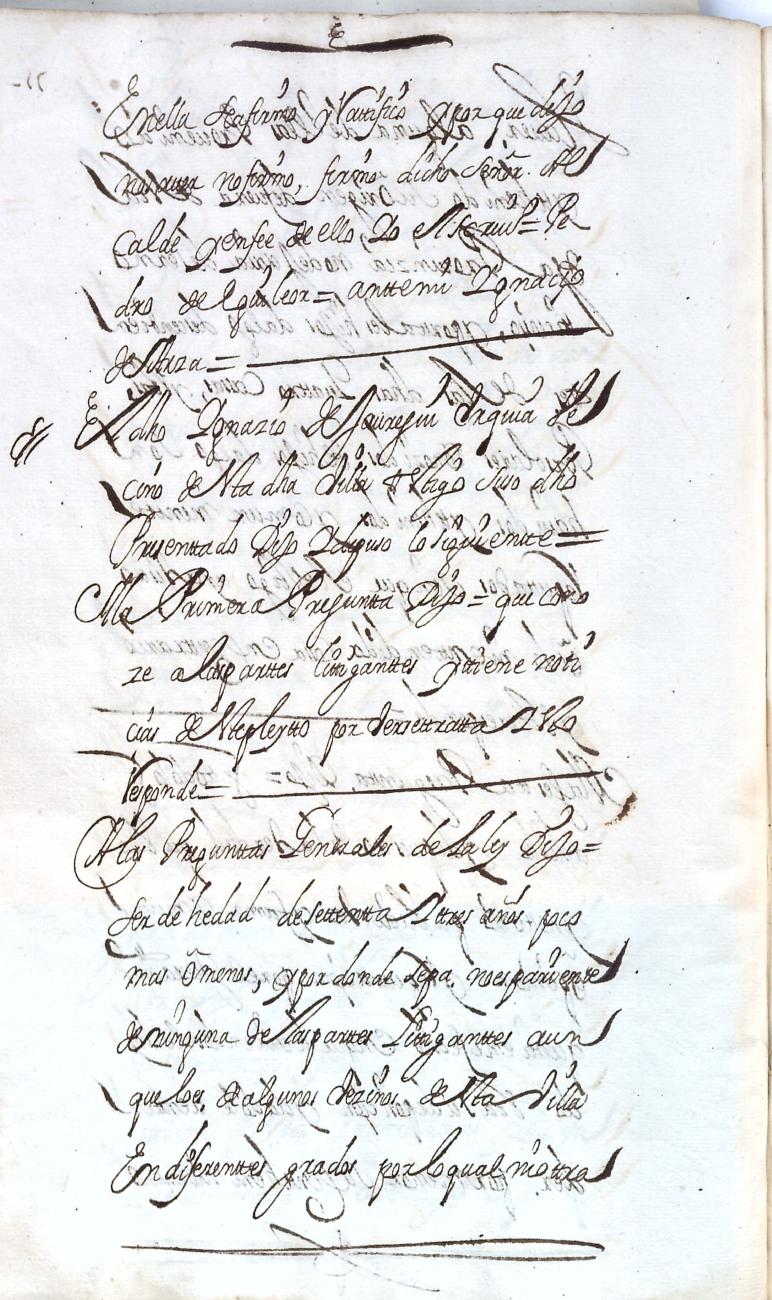 En ella se afirmo y Rattifico y por que dijo
no sauer no firmo, firmo dicho señor Al
calde y en fee de ello Yo el scriuº = Pe
dro de Eguileor = anttemi Ygnacio
de
El dho Ygnazio de Jauregui Vrquia Ve
cino de esta dha Villa testigo suso dho
Presenttado Dijo Y depuso lo siguientte =
A la Primera Pregunta Dijo = que cono
ze a las parttes littiganttes y ttiene noti
cias de este pleytto por el que se ttratta Y estto
Responde =
A las Preguntas Generales de la ley Dijo =
ser de hedad de settentta Y ttres años poco
mas ô menos, y por donde sepa no es parientte
de ninguna de las parttes Littiganttes aun
que lo es de algunos Vezinos de esta Villa
En diferenttes grados por lo qual ni ottra